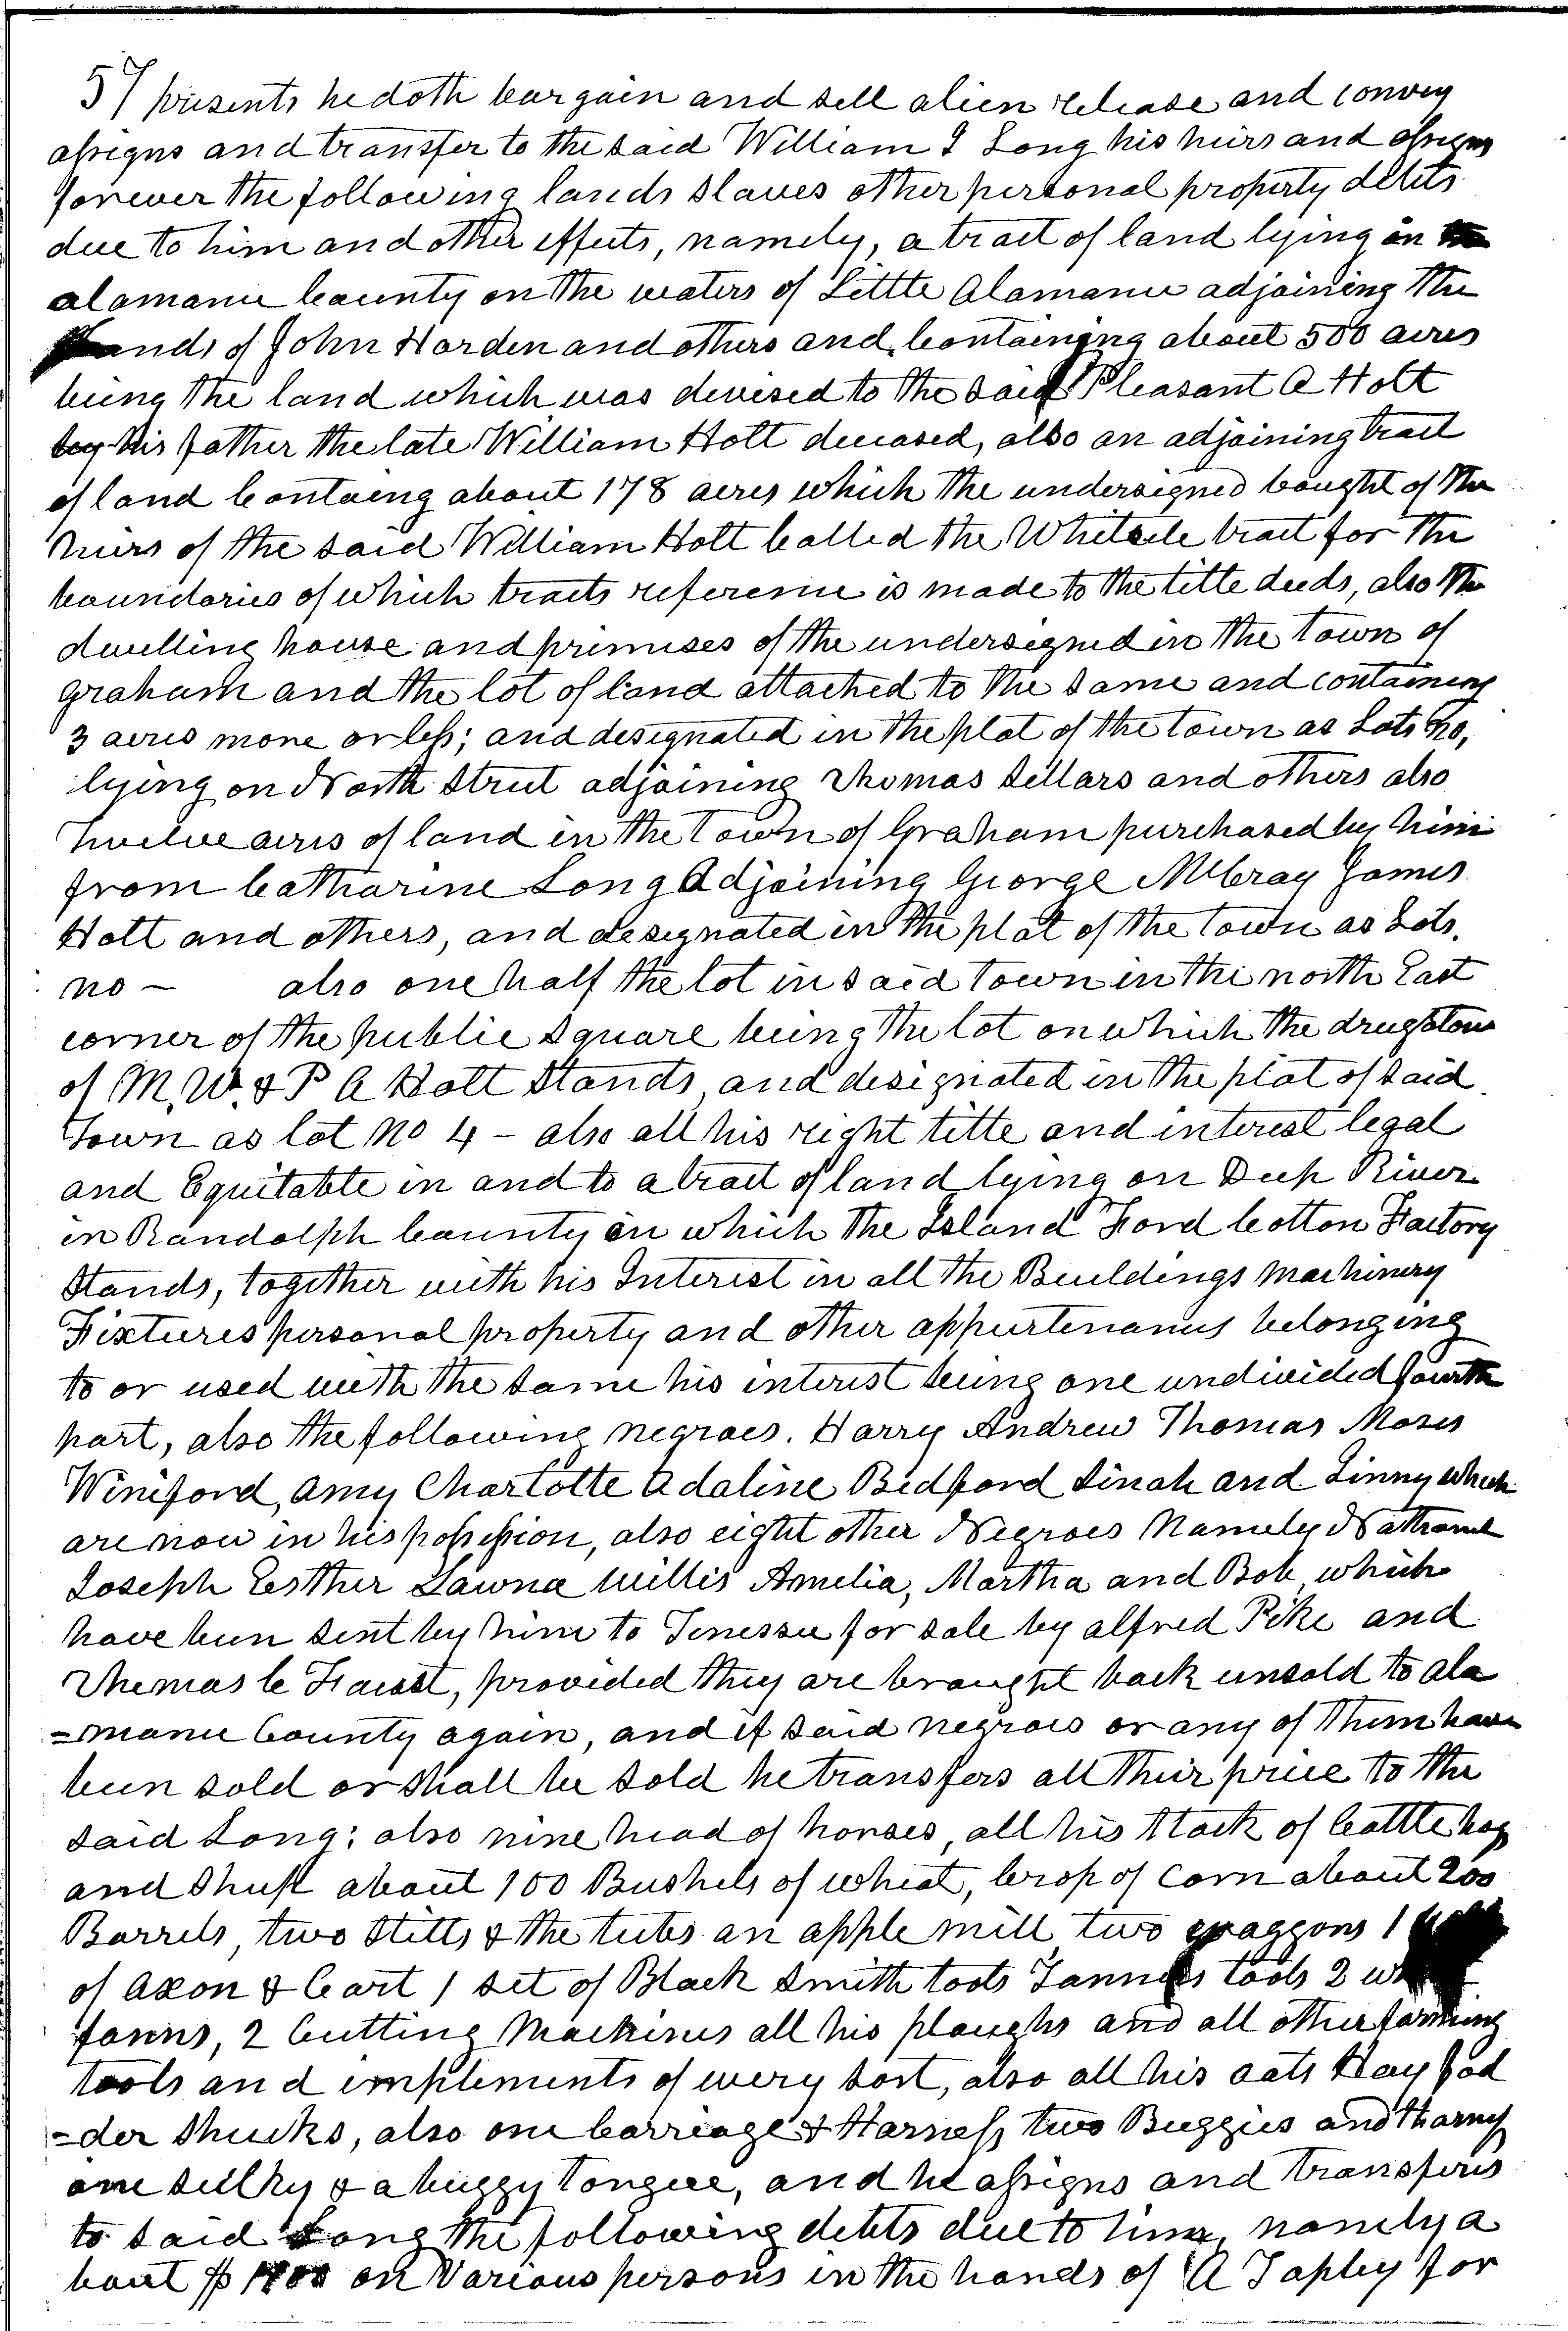 57 presents he doth bargain and sell alien release and convey
assigns and transfer to the said William I Long his heirs and assigns
forever the following lands slaves other personal property debts
due to him and other effects, namely, a tract of land lying in
alamance County on the waters of Little Alamance adjoining the
lands of John Harden and others and, Containing about 500 acres
being the land which was devised to the said Pleasant A Holt
by his father the late William Holt deceased, also an adjoining tract
of land Containg about 178 acres which the undersigned bought of the
heirs of the said William Holt Called the Whitsele tract for the
boundaries of which tracts reference is made to the title deeds, also the
dwelling house and premises of the undersigned in the Town of
Graham and the lot of land attached to the same and containing
3 acres more or less; and designated in the plat of the town as Lots No,
lying on North Street adjoining Thomas Sellars and others also
Twelve acres of land in the Town of Graham purchased by him
from Catharine Long Adjoining George McCray James
Holt and others, and designated in the plat of the Town as Lots.
no – also one half the lot in said Town in the north East
corner of the public Square being the lot on which the drugstore
of M. W. & P A Holt Stands, and designated in the plat of said
Town as lot No 4 – also all his right title and interest legal
and Equitable in and to a tract of land lying on Deep River
in Randolph County on which the Island Ford Cotton Factory
Stands, together with his Interest in all the Buildings Machinery
Fixtures personal property and other appurtenances belonging
to or used with the same his interest being one undivided fourth
part, also the following negroes. Harry Andrew Thomas Moses
Winiford, Amy Charlotte Adaline Bedford Sinah and Linny which
are now in his possession, also eight other Negroes Namely Nathaniel
Joseph Esther Lawna Willis Amelia, Martha and Bob, which
have been sent by him to Tenessee for sale by alfred Pike and
Thomas C Faust, provided they are brought back unsold to Ala
=mance County again, and if said negroes or any of them have
been sold or shall be sold he transfers all their price to the
said Long; also nine head of horses, all his Stock of Cattle hogs
and Sheep about 100 Bushels of wheat, Crop of Corn about 200
Barrels, two Stills & the tubs an apple mill, two waggons 1
of axon & Cart 1 set of Black Smith tools Tanners tools 2
fanns, 2 Cutting Machines all his ploughs and all other farming
tools and implements of every sort, also all his oats Hay fod
=der Shucks, also one Carriage & Harness two Buggies and Harness
one sulky & a buggy Tongue, and he assigns and Transfers
to said Long the following debts due to him, namely a
bout $ 1400 on Various persons in the hands of A Tapley for